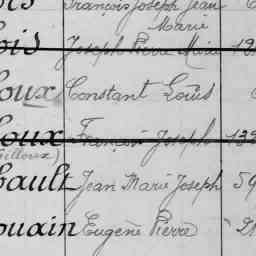 François Joseph Jean
Marie
ois Joseph Pierre Marie
oux Constant Louis
oux François Joseph
illoux)
bault Jean Marie Joseph 59
ouain Eugène Pierre